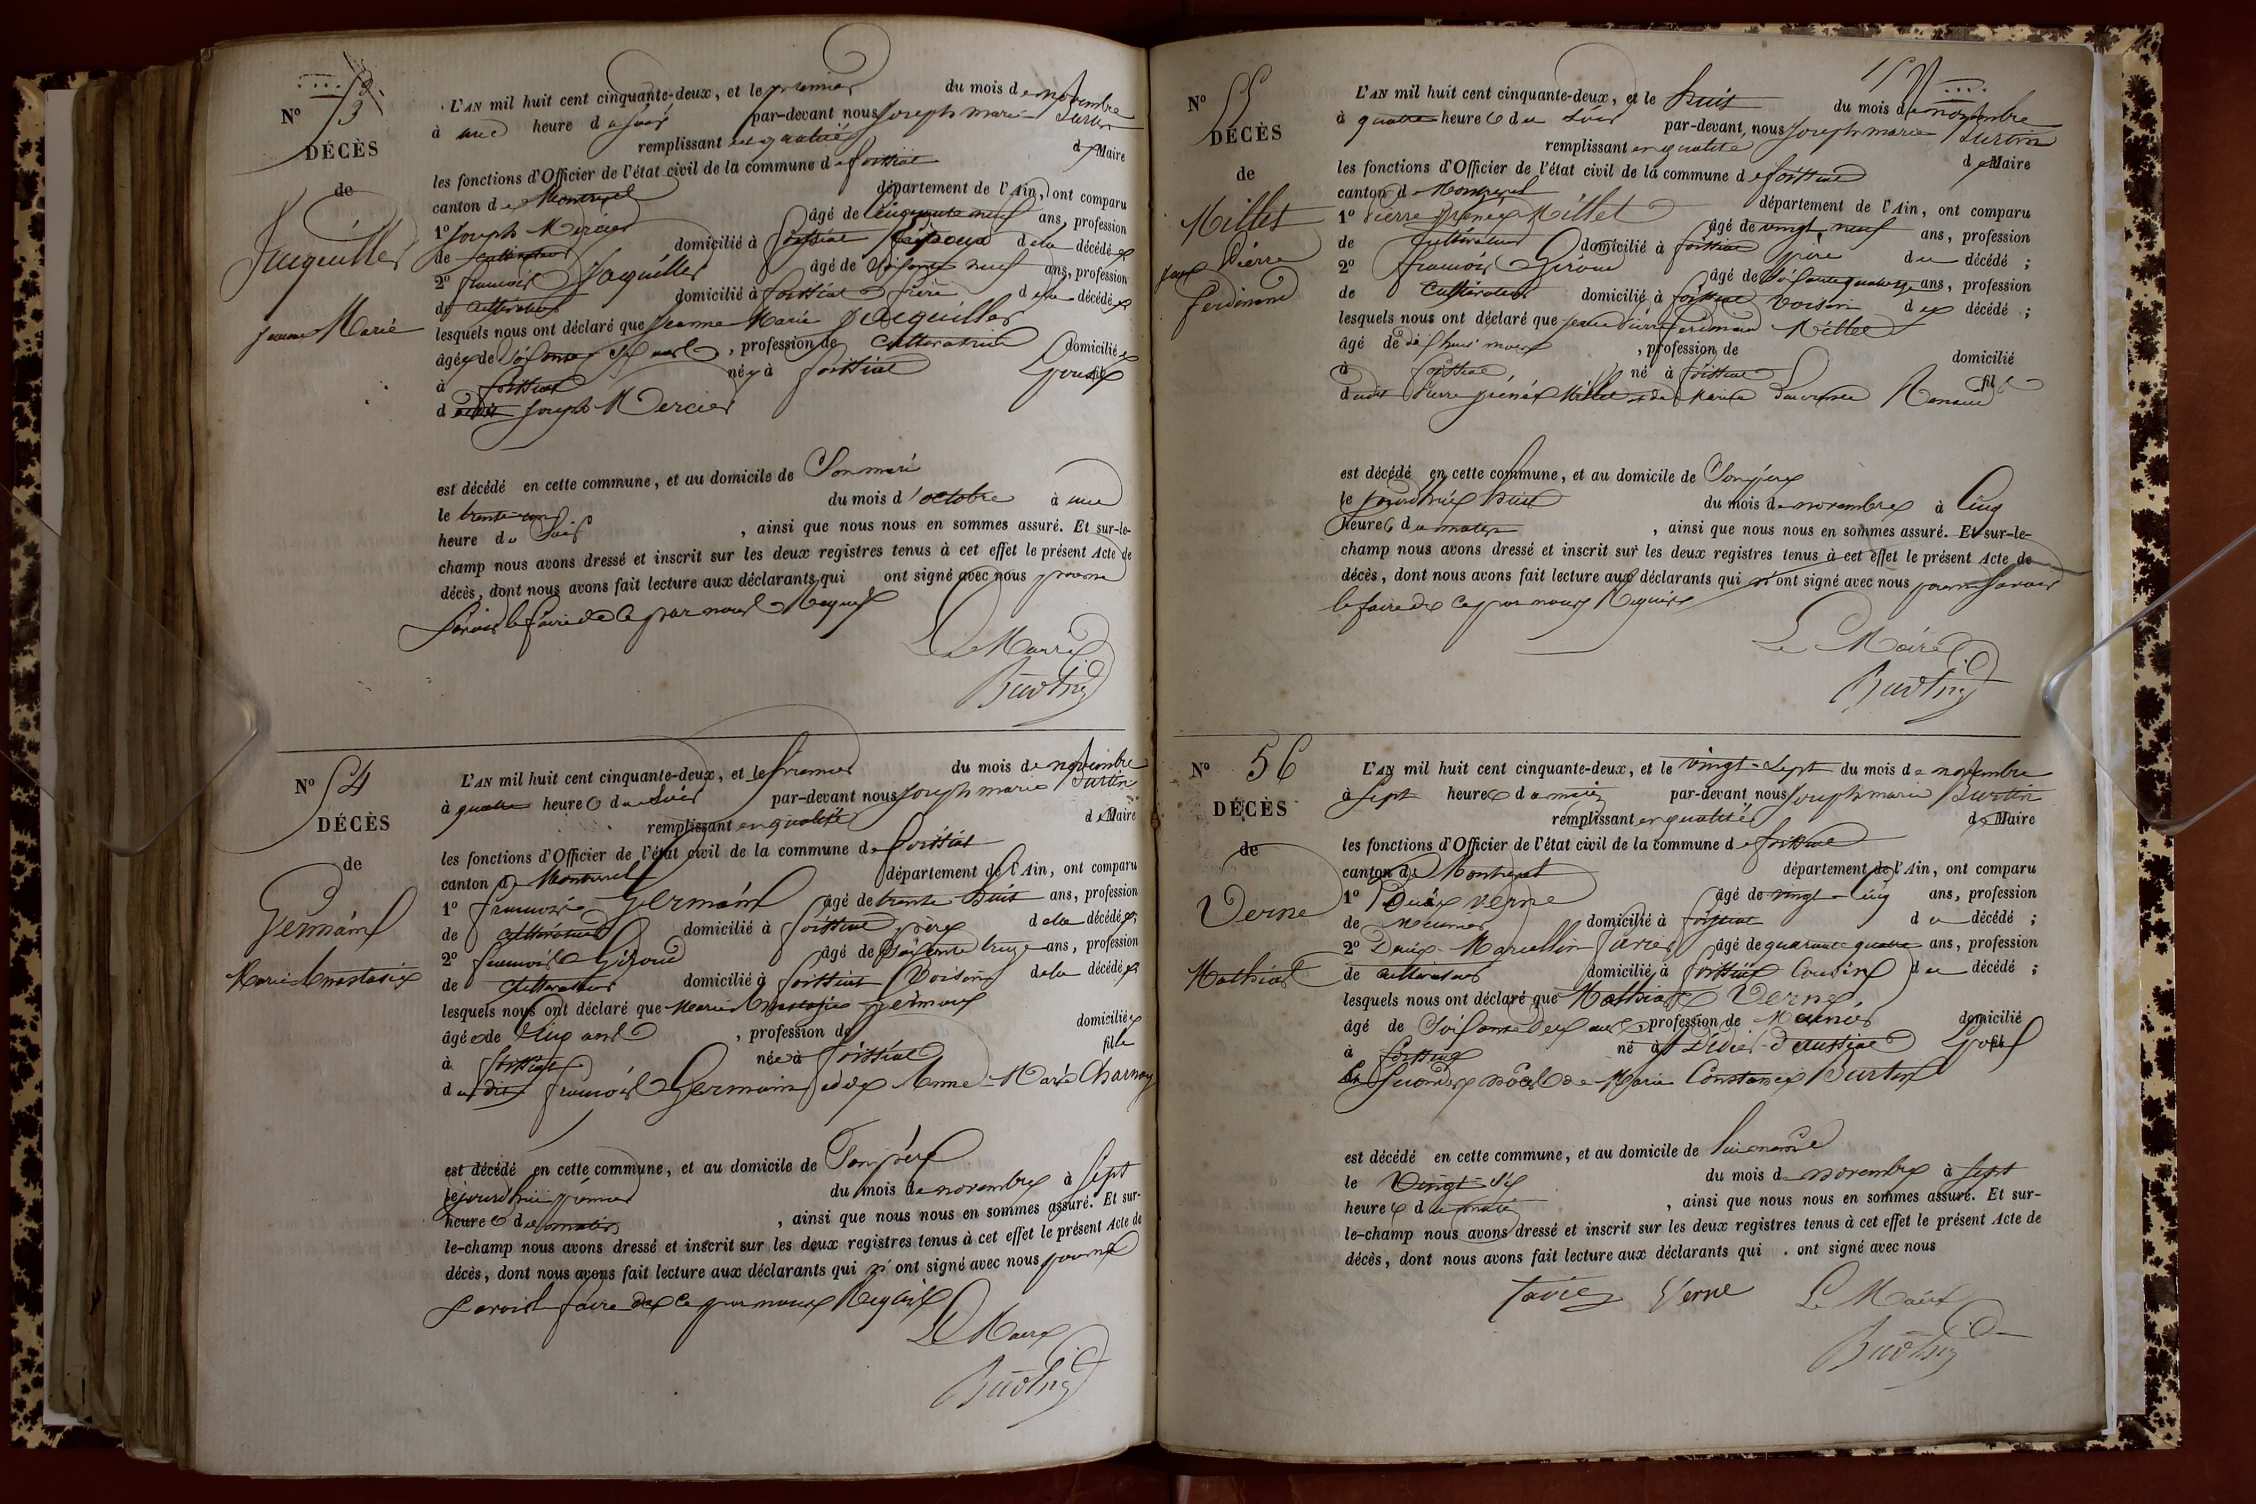 N° 53
DÉCÈS
de
Jaquiller
jeanne Marie
L'AN mil huit cent cinquante-deux, et le premier du mois de novembre
à une heure du soir par-devant nous joseph marie Burtin
remplissant en qualité de Maire
les fonctions d'Officier de l'état civil de la commune de foissiat
canton de Montrevel département de l'Ain, ont comparu
1° joseph Mercier âgé de cinquante neuf ans, profession
de cultivateur domicilié à foissiat époux de la décédée
2° francois jaquiller âgé de soixante neuf ans, profession
de cultivateur domicilié à foissiat frère de la décédée
lesquels nous ont déclaré que jeanne Marie jacquiller
âgée de soixante six ans, profession de cultivatrice domiciliée
à foissiat née à foissiat
dudit joseph Mercier
est décédé en cette commune, et au domicile de Son mari
le trente-un du mois d'octobre à une
heure du Soir, ainsi que nous nous en sommes assuré. Et sur-le-
champ nous avons dressé et inscrit sur les deux registres tenus à cet effet le présent Acte de
décès, dont nous avons fait lecture aux déclarants qui ont signé avec nous pour ne
Savoir le faire de ce par nous Requis
Le Maire
Burtin
N° 54
DÉCÈS
de
Germain
Marie Anastasie
L'AN mil huit cent cinquante-deux, et le premier du mois de novembre
à quatre heures du soir par-devant nous joseph marie Burtin
remplissant en qualité de Maire
les fonctions d'Officier de l'état civil de la commune de foissiat
canton de Montrevel département de l'Ain, ont comparu
1° francois Germain âgé de trente huit ans, profession
de cultivateur domicilié à foissiat père de la décédée;
2° francois Giroud âgé de soixante treize ans, profession
de cultivateur domicilié à foissiat Voisin de la décédée
lesquels nous ont déclaré que Marie Anastasie germain
âgée de cinq ans, profession de domiciliée
à foissiat née à foissiat fille
dudit francois Germain et de Anne-Marie Charnay
est décédé en cette commune, et au domicile de Son père
lejourd'hui premier du mois de novembre à Sept
heures du matin, ainsi que nous nous en sommes assuré. Et sur-
le-champ nous avons dressé et inscrit sur les deux registres tenus à cet effet le présent Acte de
décès, dont nous avons fait lecture aux déclarants qui n'ont signé avec nous pour ne
savoir le faire de ce par nous Requis
Le Maire
Burtin
N° 55
DÉCÈS
de
Millet
jean Pierre
ferdinand
L'AN mil huit cent cinquante-deux, et le huit du mois de novembre
à quatre heures du soir par-devant nous joseph marie Burtin
remplissant en qualité de Maire
les fonctions d'Officier de l'état civil de la commune de foissiat
canton de Montrevel département de l'Ain, ont comparu
1° Pierre Millet âgé de vingt neuf ans, profession
de cultivateur domicilié à foissiat père du décédé;
2° francois Giroud âgé de soixante quatorze ans, profession
de cultivateur domicilié à foissiat voisin du décédé;
lesquels nous ont déclaré que jean Pierre ferdinand Millet
âgé de dix huit mois, profession de domicilié
à foissiat né à foissiat fils
dudit Pierre Millet et de Marie Renaud
est décédé en cette commune, et au domicile de Son père
le jourd'hui huit du mois de novembre à Cinq
heures du matin, ainsi que nous nous en sommes assuré. Et sur-le-
champ nous avons dressé et inscrit sur les deux registres tenus à cet effet le présent Acte de
décès, dont nous avons fait lecture aux déclarants qui n'ont signé avec nous pour ne savoir
le faire de ce par nous Requis
Le Maire
Burtin
N° 56
DÉCÈS
de
Verne
Mathias
L'AN mil huit cent cinquante-deux, et le vingt-sept du mois de novembre
à sept heures du matin par-devant nous joseph marie Burtin
remplissant en qualité de Maire
les fonctions d'Officier de l'état civil de la commune de foissiat
canton de Montrevel département de l'Ain, ont comparu
1° verne âgé de vingt-cinq ans, profession
de Meunier domicilié à foissiat du décédé;
2° Marcellin âgé de quarante quatre ans, profession
de cultivateur domicilié à foissiat Cousin du décédé;
lesquels nous ont déclaré que Mathias Verne
âgé de soixante deux ans, profession de Meunier domicilié
à foissiat né à St Didier d'aussiat époux
en Secondes noces de Marie Constance Burtin
est décédé en cette commune, et au domicile de lui même
le Vingt-Six du mois de novembre à sept
heures du matin, ainsi que nous nous en sommes assuré. Et sur-
le-champ nous avons dressé et inscrit sur les deux registres tenus à cet effet le présent Acte de
décès, dont nous avons fait lecture aux déclarants qui ont signé avec nous
Verne Le Maire
Burtin